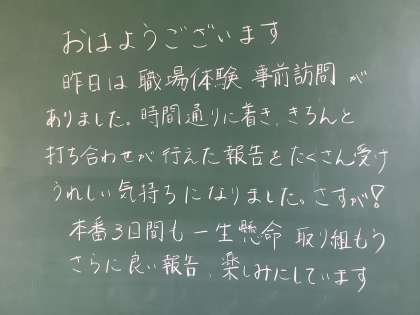 おはようございます
昨日は 職場体験 事前訪問 が
ありました。時間通りに着き、きちんと
打ち合わせが 行えた 報告を たくさん 受け
うれしい 気持ちに なりました。さすが!
本番3日間も 一生懸命 取り組もう
さらに 良い 報告、楽しみにしています